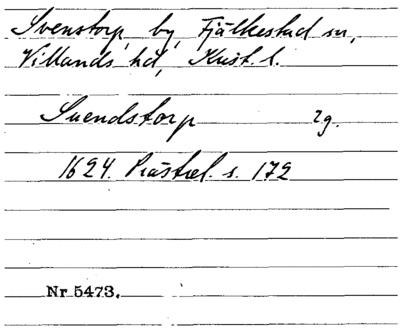 Svenstorp, by, Fjälkestad sn,
Villands hd, Krist. l.
Suendstorp 2g.
1624. Prästrel. s. 172
Nr 5473.